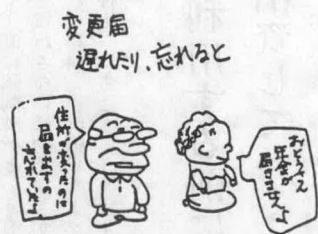 変更届
遅れたり、忘れると
住所が変ったのに
届を出すの
忘れていたよ
おとうさん
年金が
届きませんよ